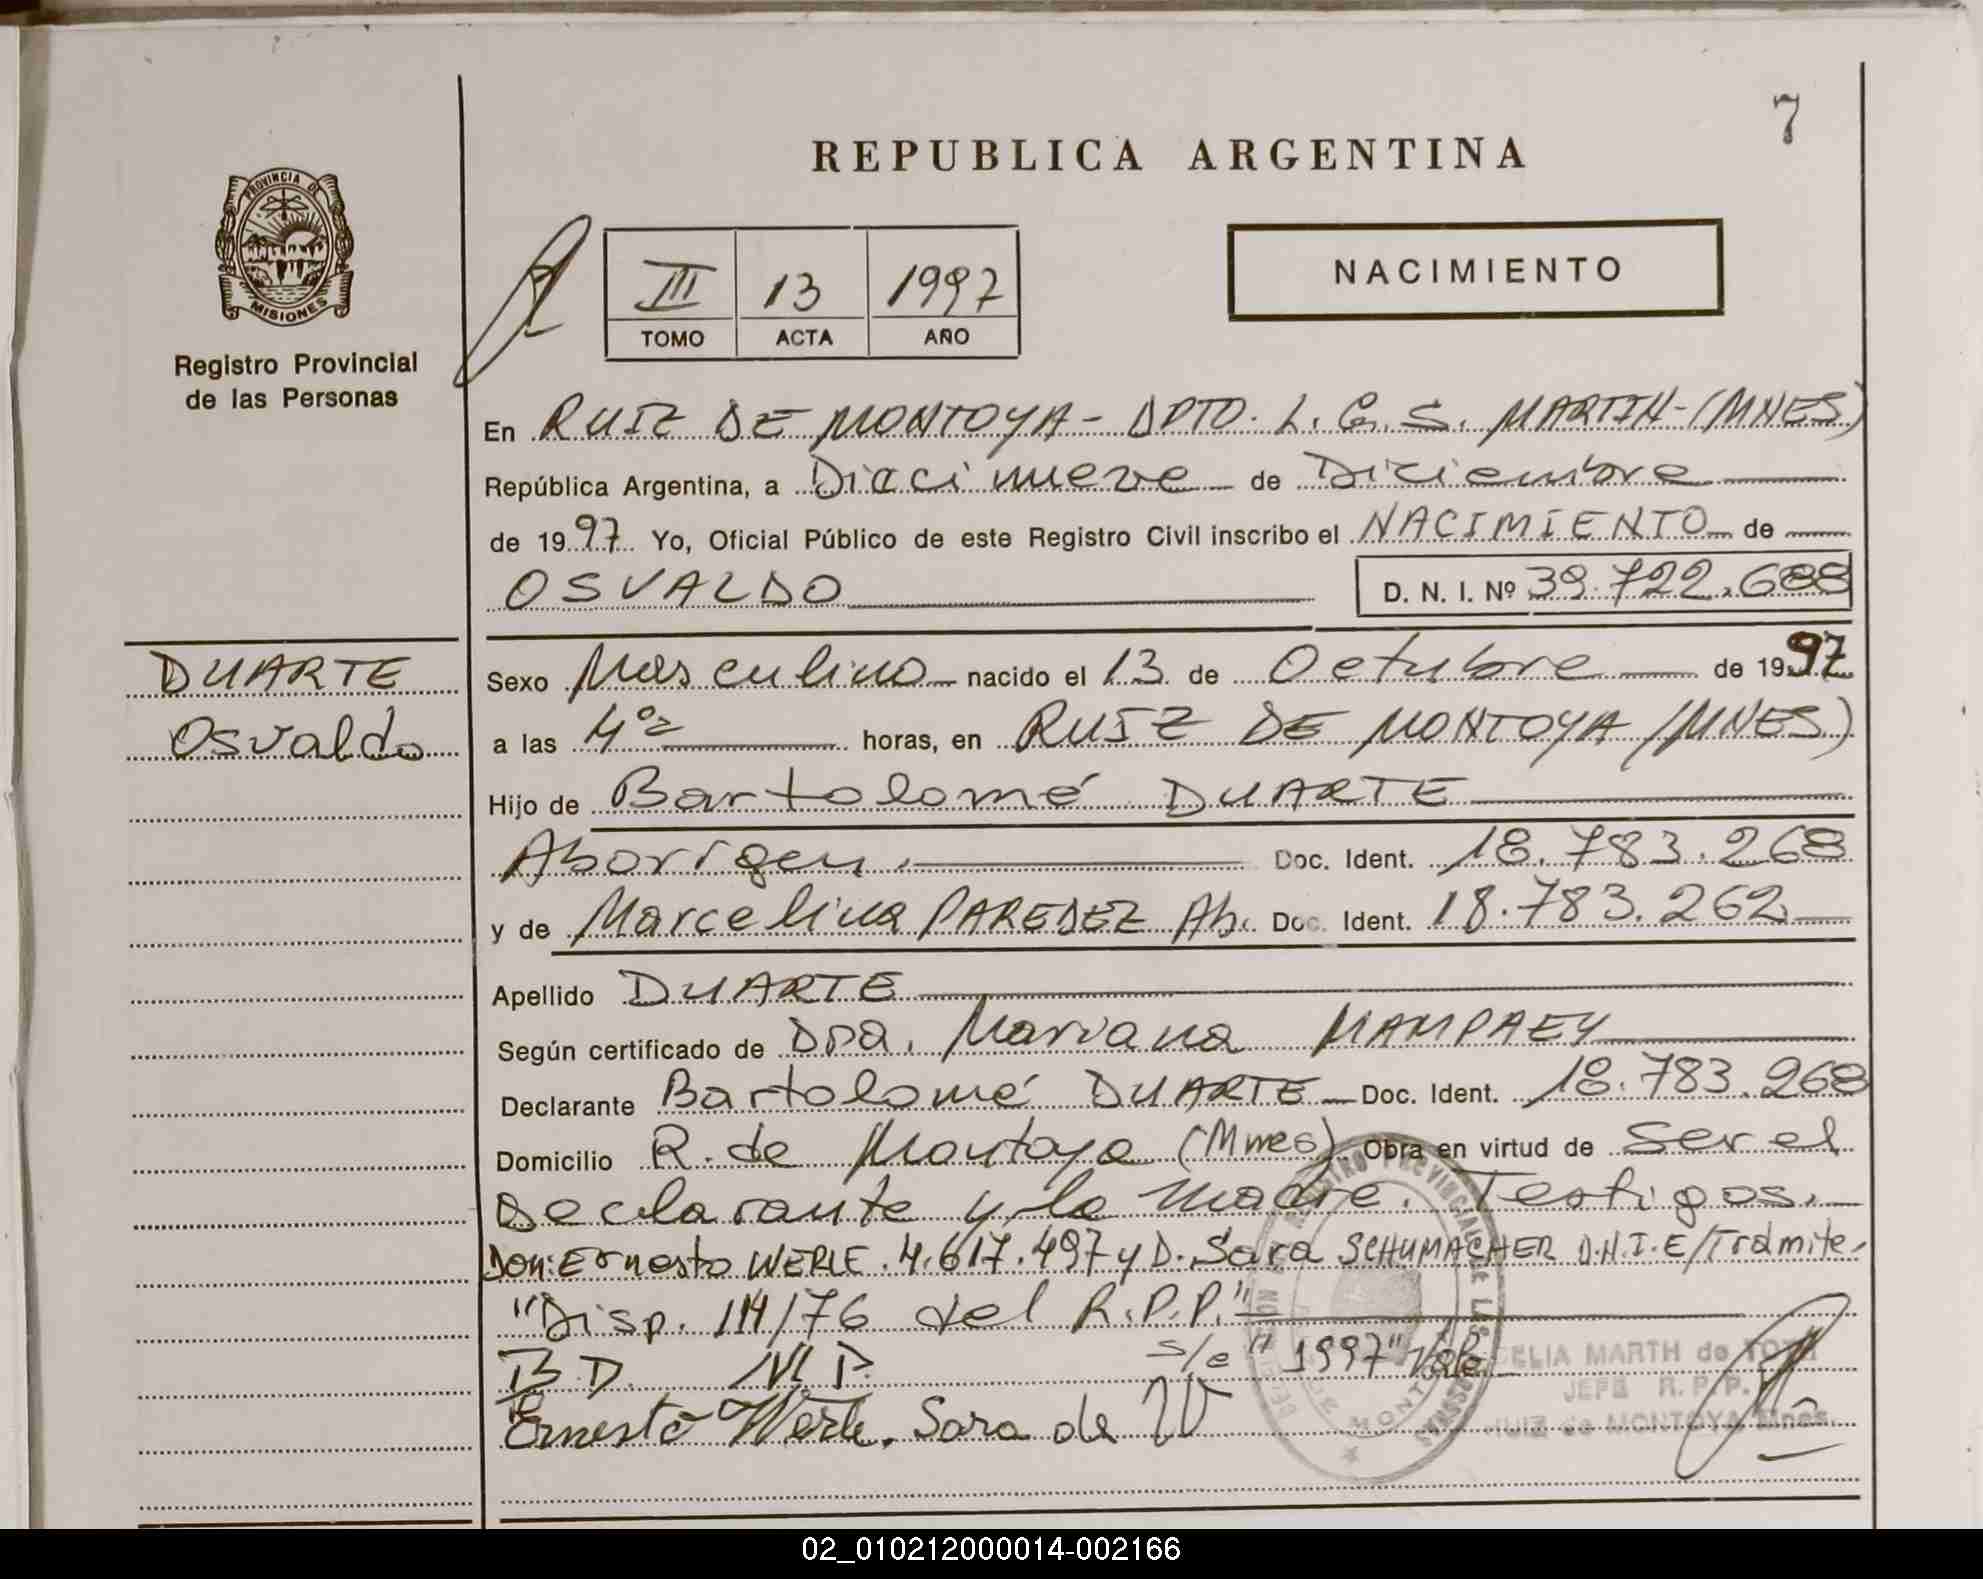 7
REPUBLICA ARGENTINA
PROVINCIA DE
MISIONES
Registro Provincial
de las Personas
III 13 1997
TOMO ACTA AÑO
NACIMIENTO
En RUIZ DE MONTOYA - DPTO. L. G. S. MARTIN - (MNES)
República Argentina, a Diecinueve de Diciembre
de 1997 Yo, Oficial Público de este Registro Civil inscribo el NACIMIENTO de
OSVALDO D. N. I. Nº 39.722.688
DUARTE
Osvaldo
Sexo Masculino nacido el 13 de Octubre de 1997
a las 4º² horas, en RUIZ DE MONTOYA (MNES)
Hijo de Bartolomé DUARTE
Aborigen. Doc. Ident. 18.783.268
y de Marcelina PAREDEZ Ab. Doc. Ident. 18.783.262
Apellido DUARTE
Según certificado de Dra. Mariana MAMPAEY
Declarante Bartolomé DUARTE Doc. Ident. 18.783.268
Domicilio R. de Montoya (Mnes) Obra en virtud de Ser el
Declarante y la Madre. Testigos.
Don: Ernesto WERLE. 4.617.497 y D. Sara SCHUMACHER D.N.I. E/Trámite.
"Disp. 114/76 del R.P.P."
B.D. M.P. s/e "1997" Vale
Ernesto Werle. Sara de W
REGISTRO PROVINCIAL DE LAS PERSONAS
DE MONTOYA
CELIA MARTH de TOTH
JEFE R.P.P.
RUIZ de MONTOYA Mnes.
02_010212000014-002166